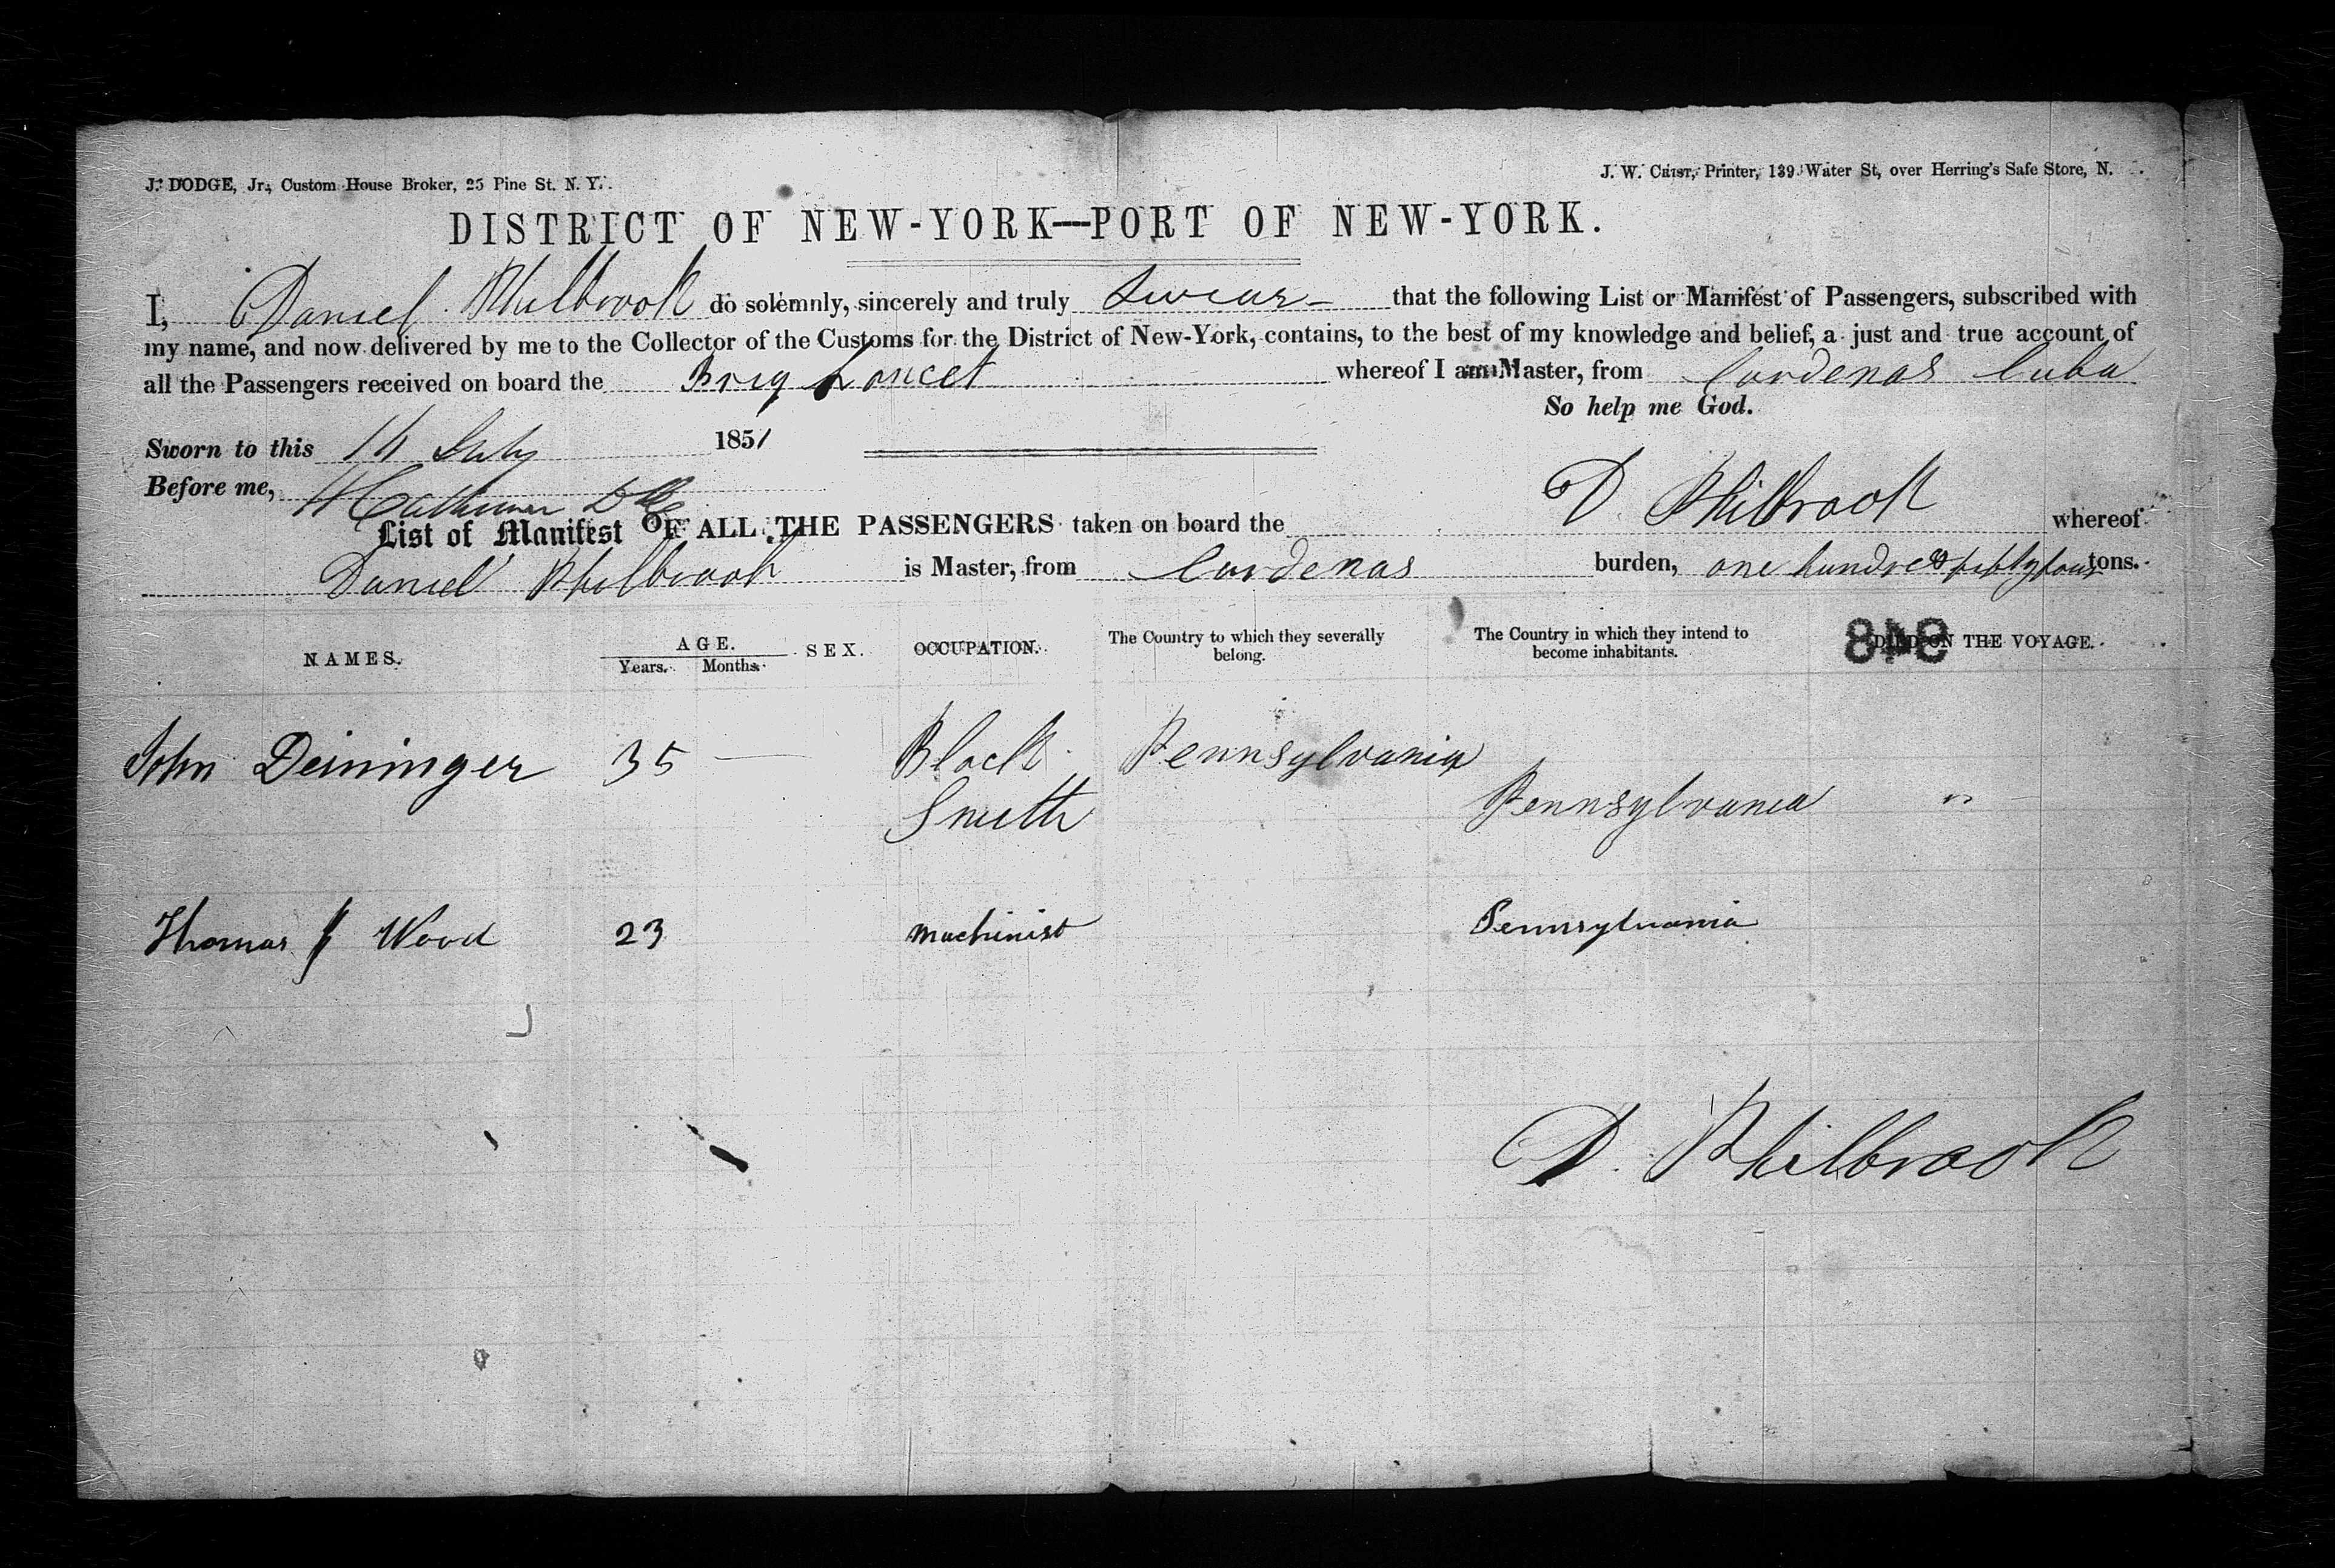 J. DODGE, Jr., Custom House Broker, 25 Pine St. N. Y.
J. W. Printer, 139 Water St, over Herring's Safe Store, N.
DISTRICT OF NEW-YORK—PORT OF NEW-YORK.
I, Daniel Philbrook do solemnly, sincerely and truly Swear - that the following List or Manifest of Passengers, subscribed with
my name, and now delivered by me to the Collector of the Customs for the District of New-York, contains, to the best of my knowledge and belief, a just and true account of
all the Passengers received on board the Brig Lancet whereof I am Master, from Cardenas Cuba
So help me God.
Sworn to this July 1851
Before me,
D. Philbrook
List of Manifest OF ALL THE PASSENGERS taken on board the whereof
Daniel Philbrook is Master, from Cardenas burden, one hundred & fifty four tons.
NAMES. AGE. Years. Months. SEX. OCCUPATION. The Country to which they severally belong. The Country in which they intend to become inhabitants. DIED ON THE VOYAGE.
848
John Deininger 35 — Black Pennsylvania
Smith Pennsylvania "
Thomas J Wood 23 Machinist Pennsylvania
D. Philbrook